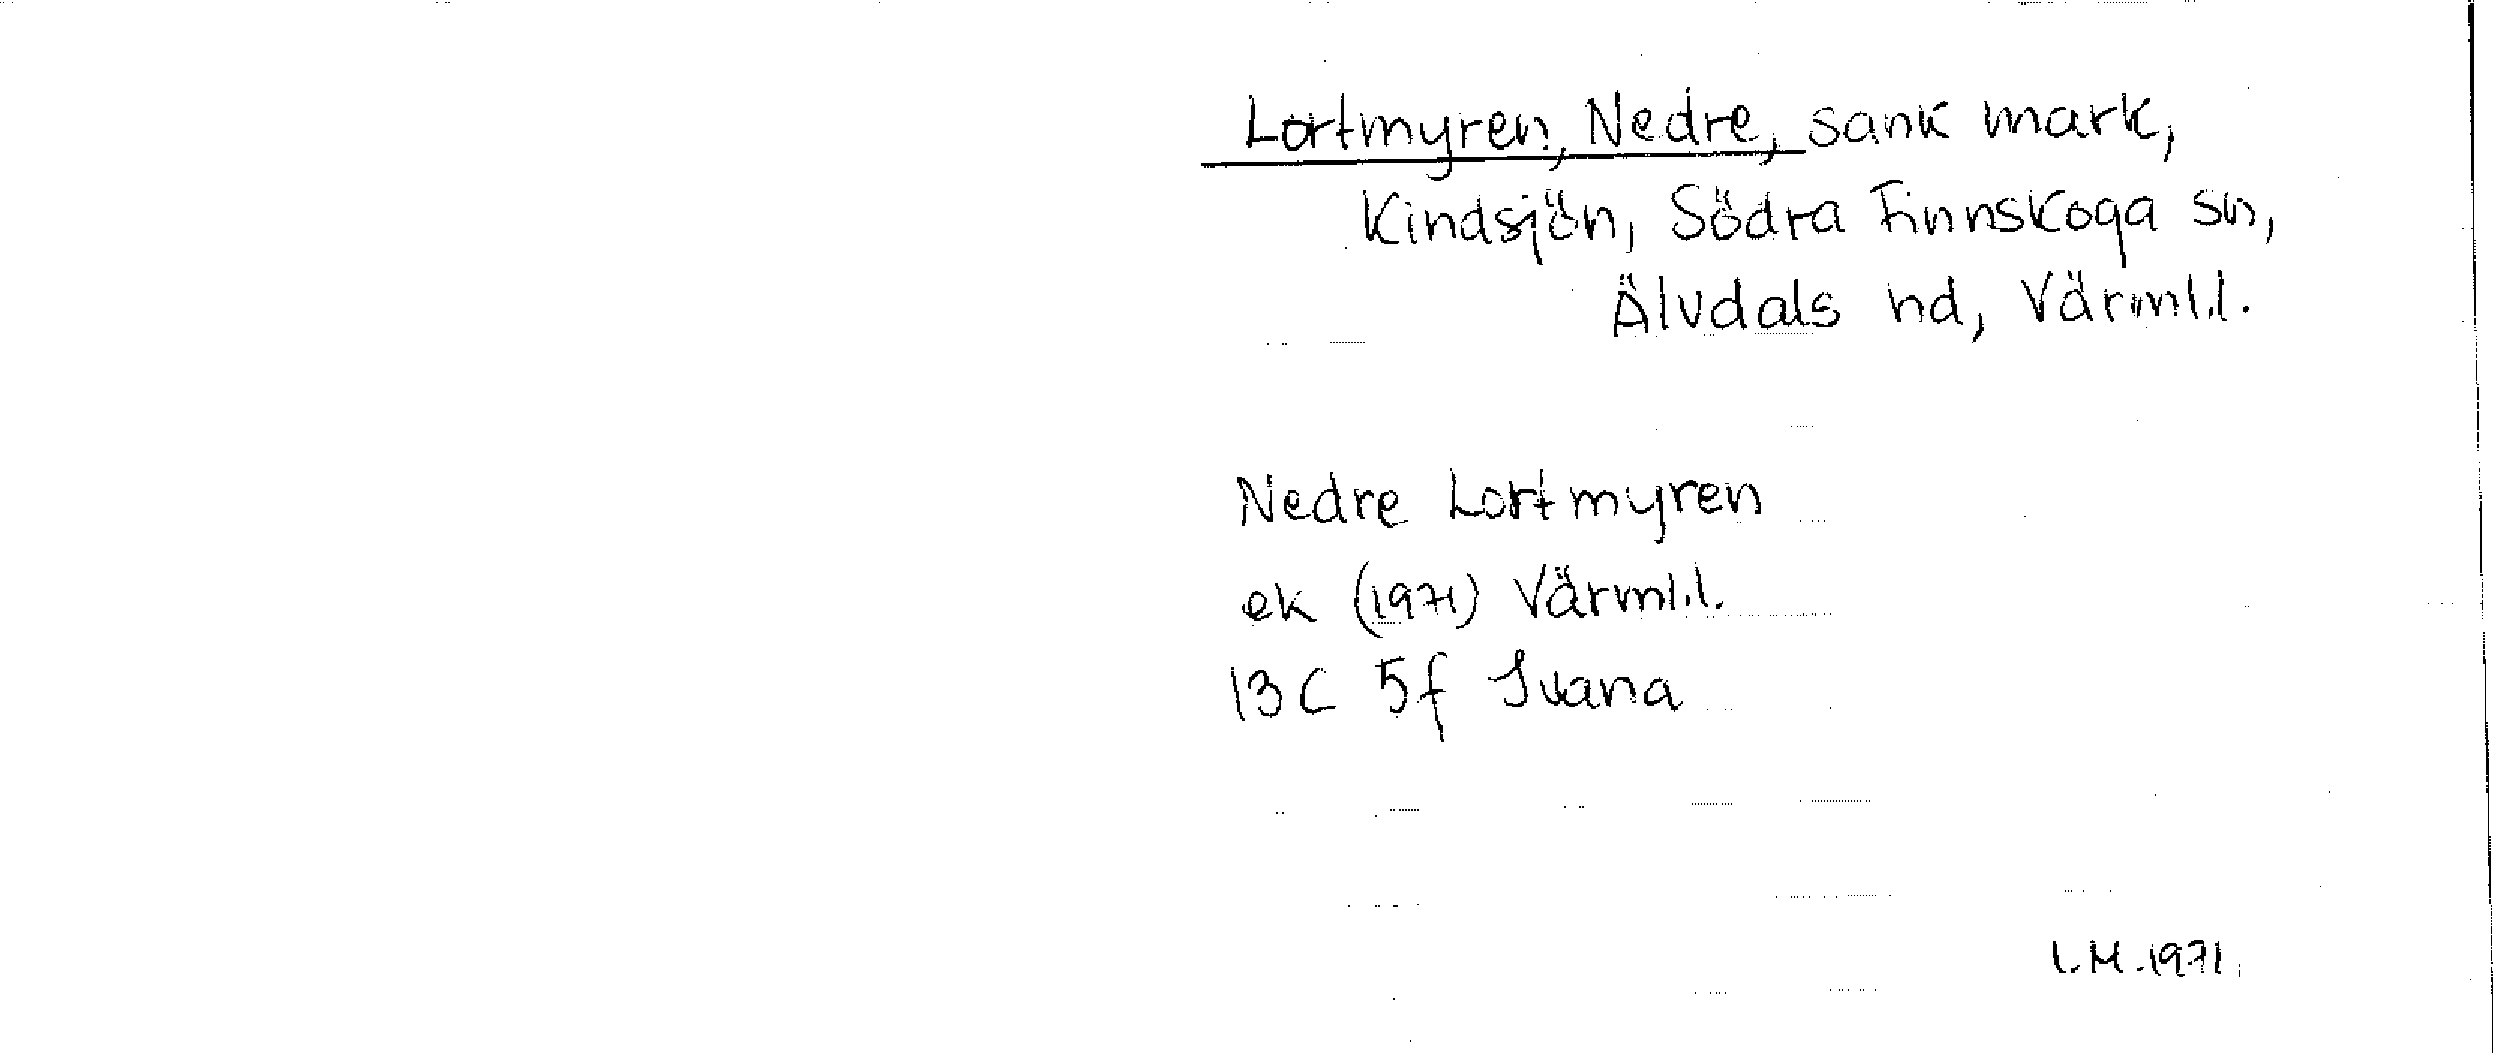 Lortmyren, Nedre, sank mark,
Kindsjön, Södra Finnskoga sn,
Älvdals hd, Värml.l.
Nedre Lortmyren
ek (1971) Värml.l.
13C 5f Ivana
I.M. 1971